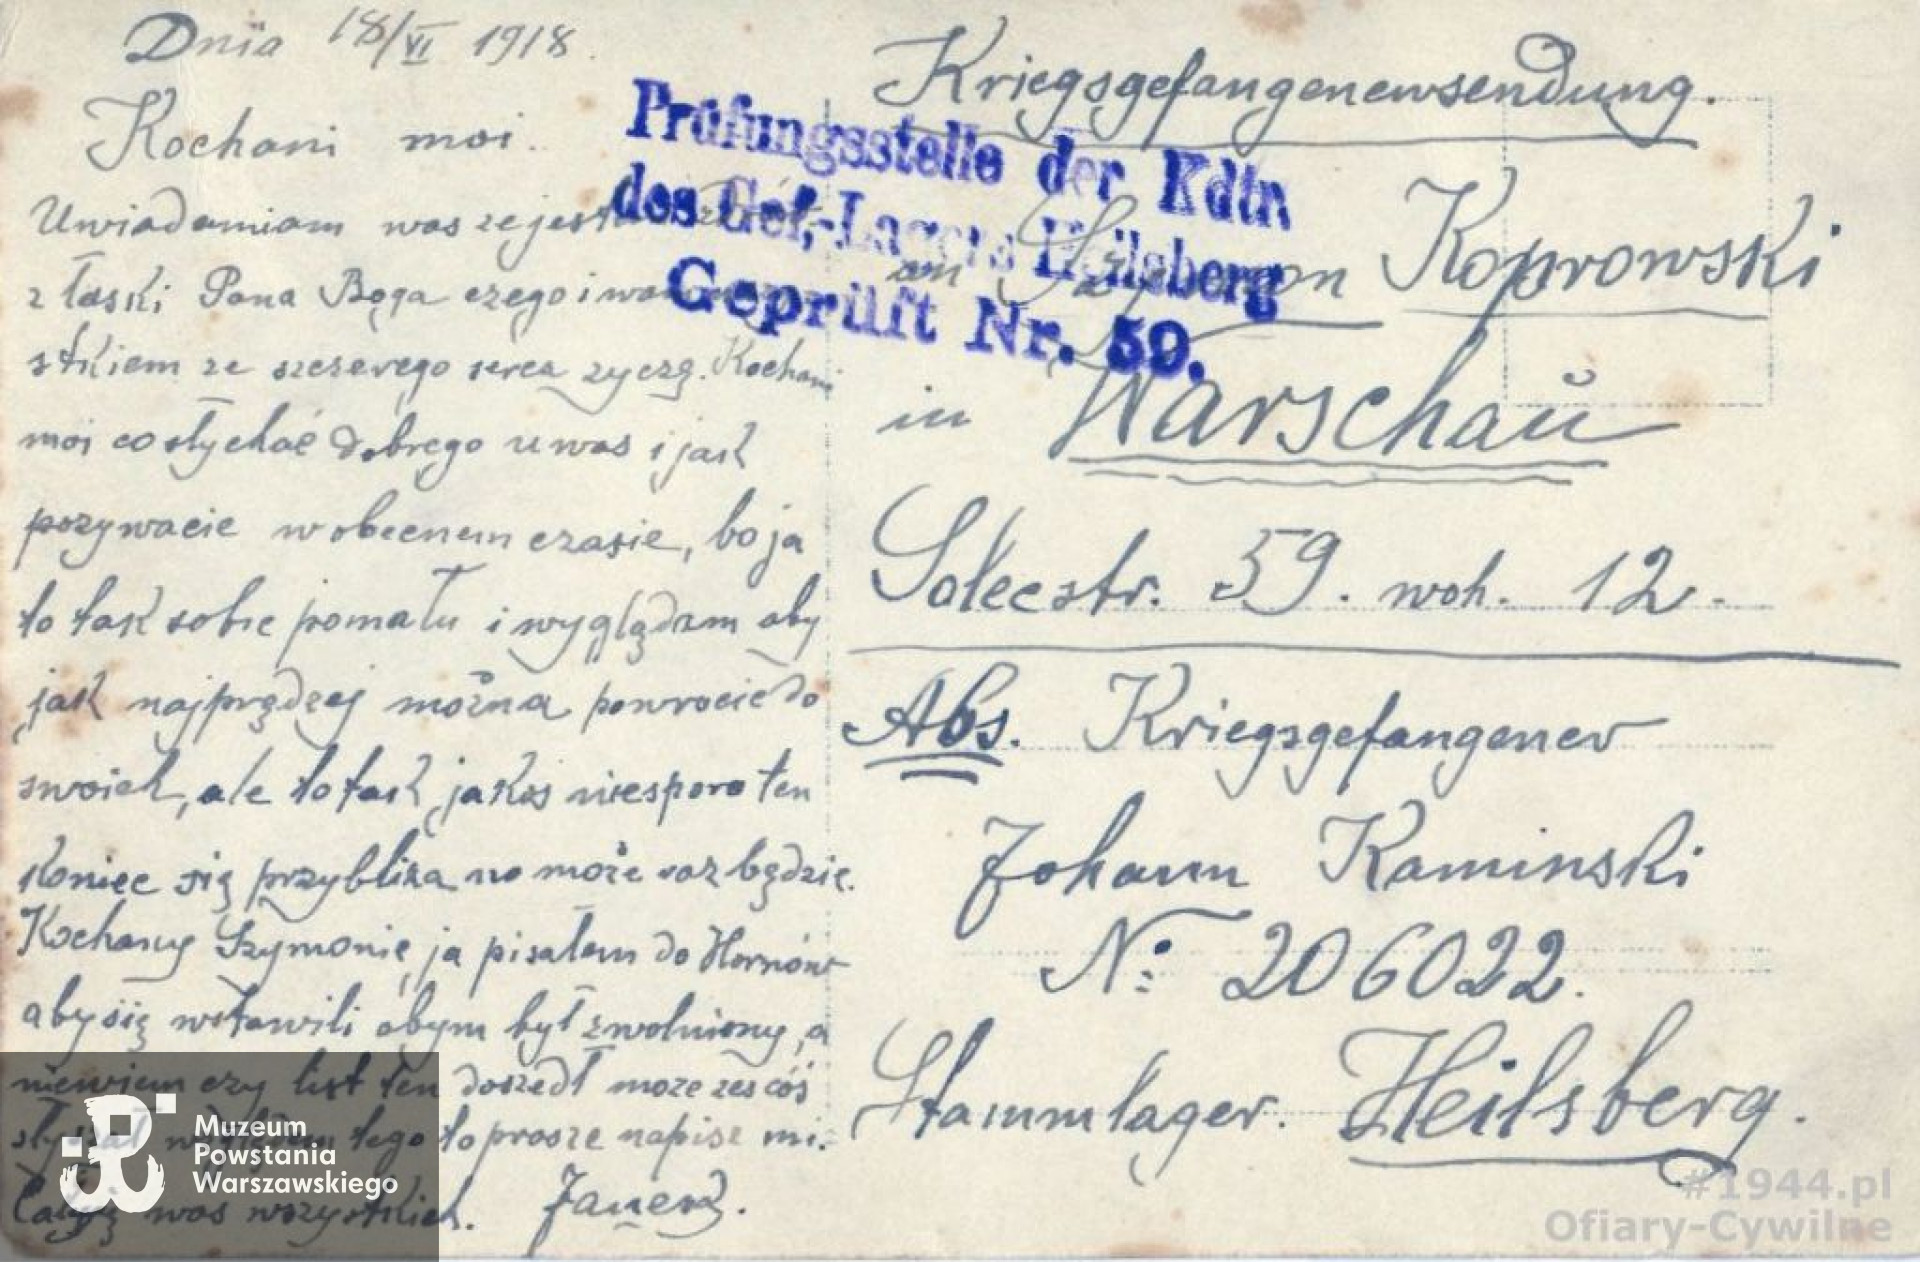 Dnia 18/VI 1918.
Kochani moi.
Uwiadamiam was ze jestem
z łaski Pana Boga czego i wam
stkiem ze szczerego serca zyczę. Kochani
moi co słychać dobrego u was i jak
pozywacie w obecnem czasie, bo ja
to tak sobie pomału i wyglądam aby
jak najprędzej można powrocić do
swoich, ale to tak jakoś niesporo ten
koniec się przybliża no może raz będzie.
Kochany Szymonie ja pisałem do Hornów
aby się wstawili abym był zwolniony, a
niewiem czy list ten doszedł moze ześ cóś
słyszał względem tego to prosze napisz mi.
Całuję was wszystkich. Janek.
Kriegsgefangenensendung.
Prüfungsstelle der Kdtr.
des Gef.-Lagers Heilsberg
Geprüft Nr. 59.
an Szymon Koprowski
in Warschau
Solecstr. 59. woh. 12.
Abs. Kriegsgefangener
Johann Kaminski
N: 206022.
Stammlager. Heilsberg.
Muzeum
Powstania
Warszawskiego
#1944.pl
Ofiary-Cywilne